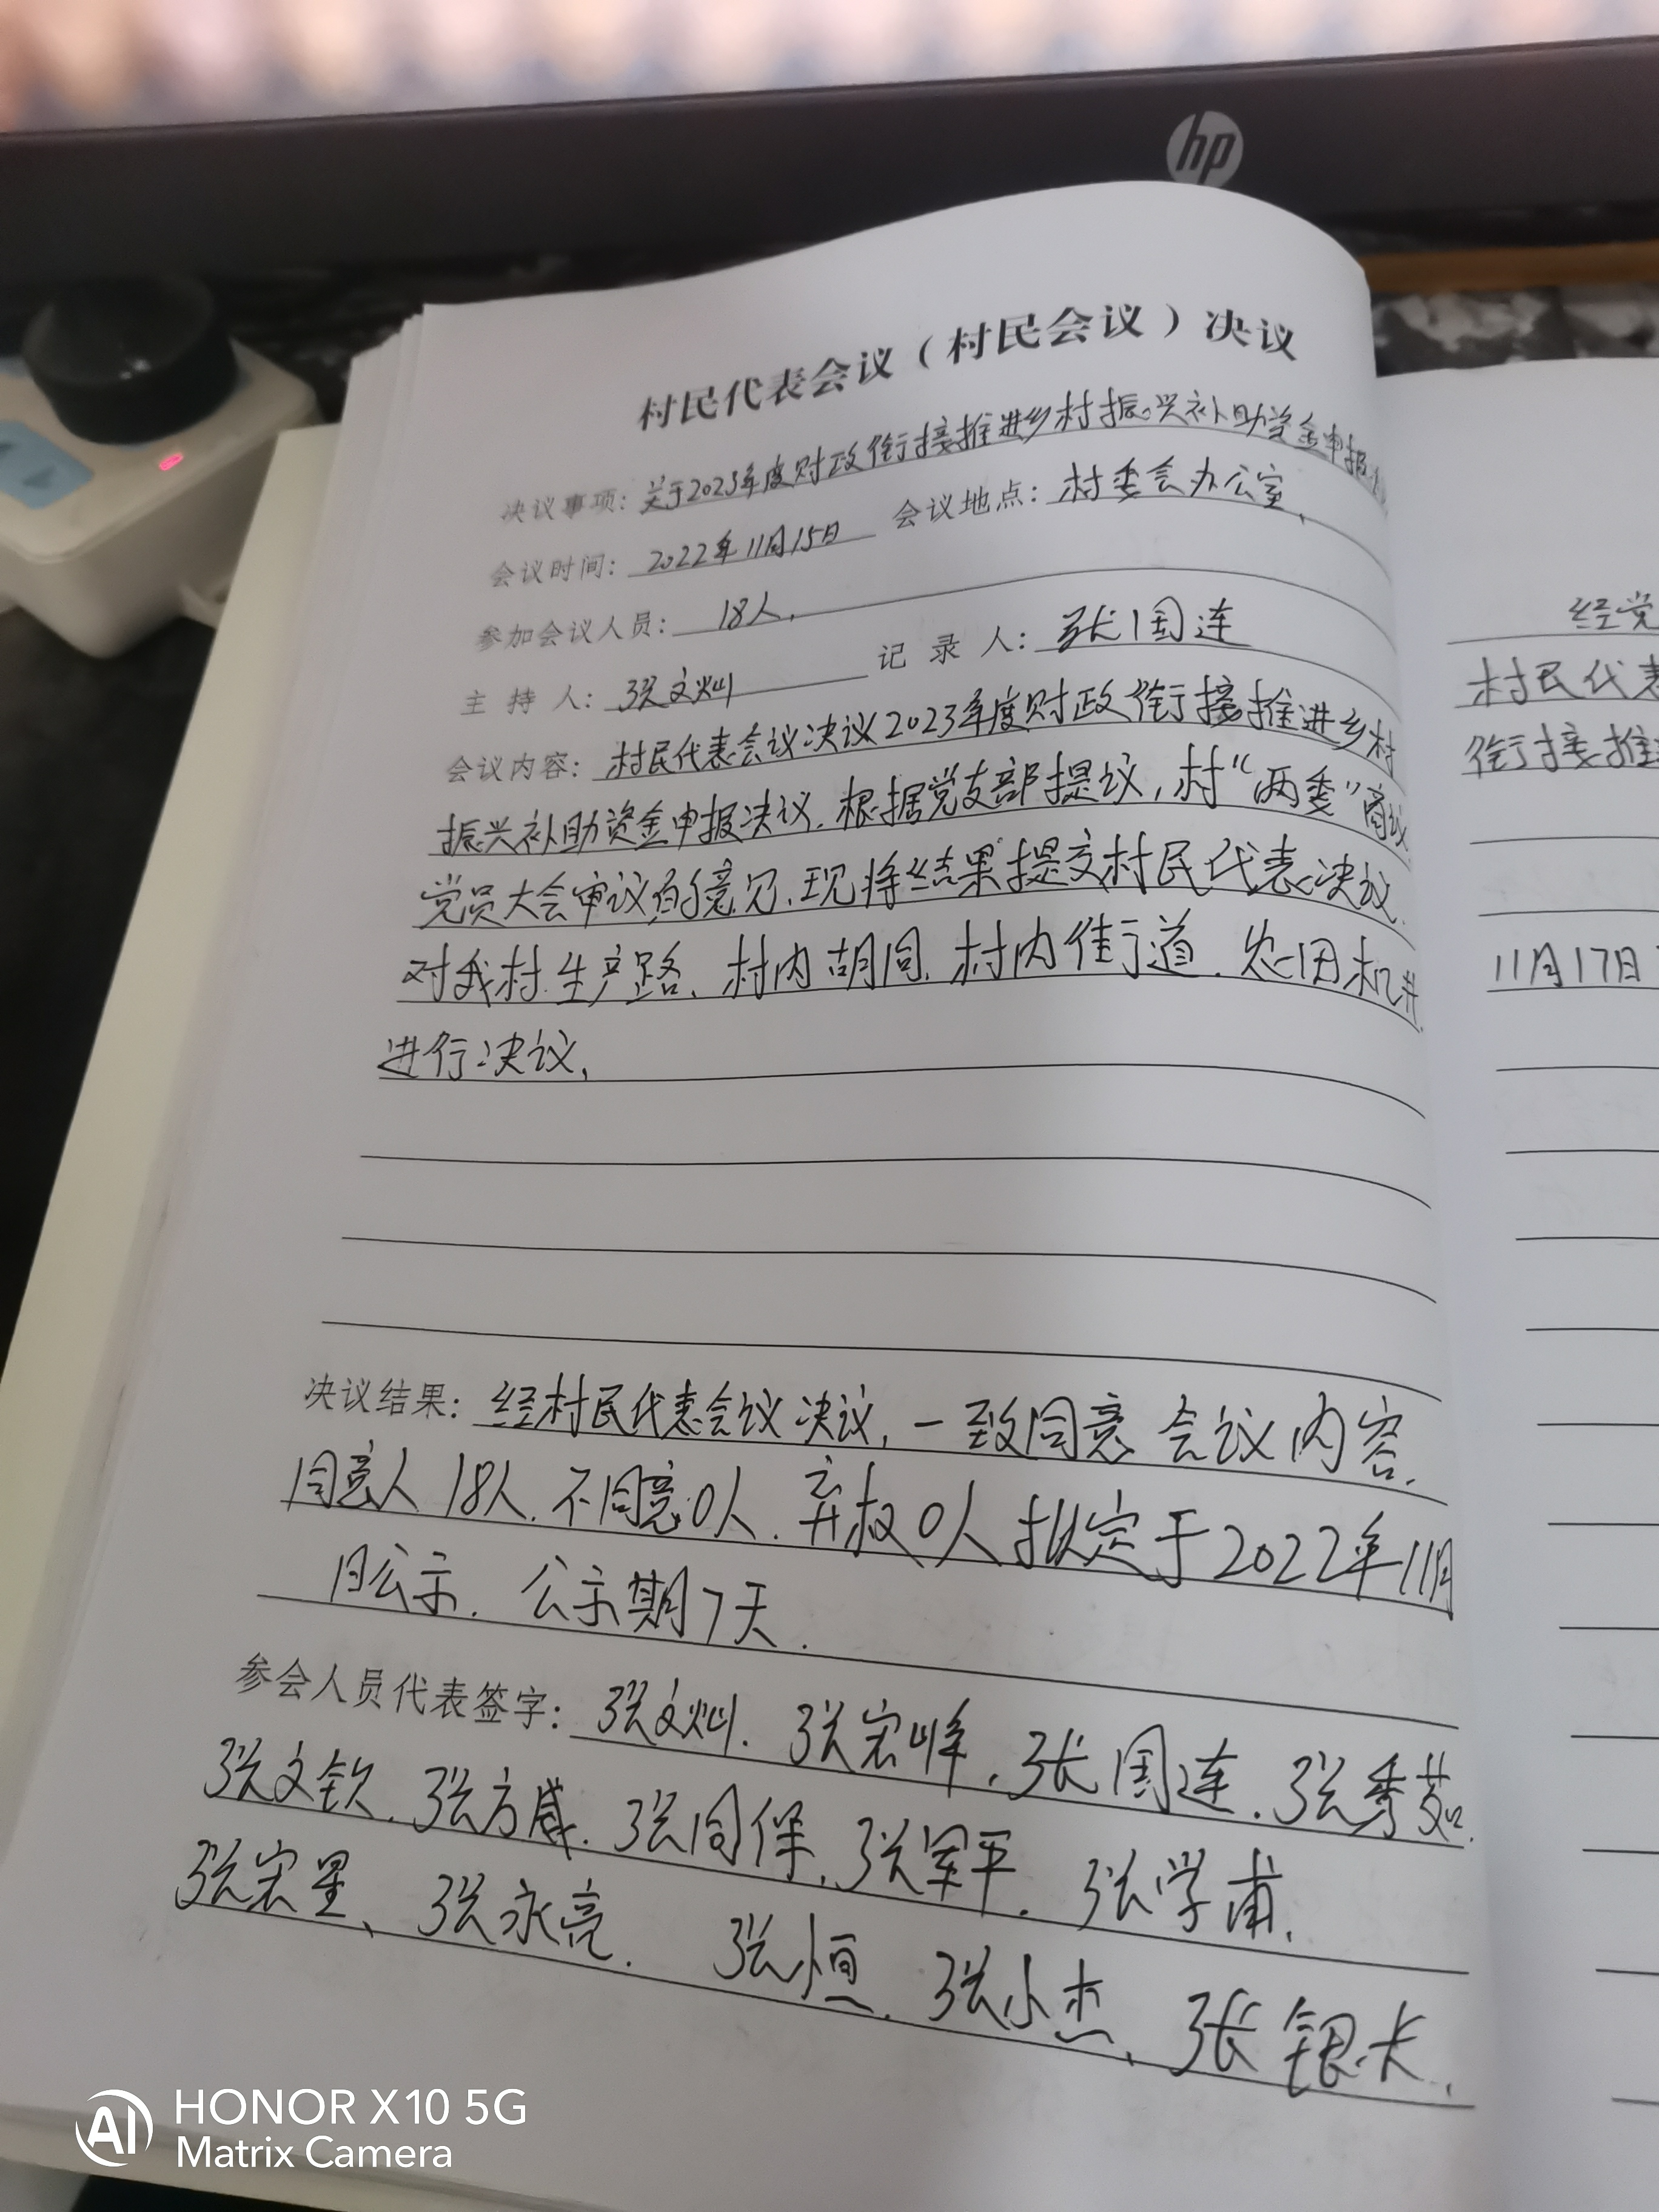 hp
村民代表会议（村民会议）决议
决议事项：关于2023年度财政衔接推进乡村振兴补助资金申报
会议时间：2022年11月15日 会议地点：村委会办公室、
参加会议人员：18人，
主持人：张文灿 记录人：张国连
会议内容：村民代表会议决议2023年度财政衔接推进乡村
振兴补助资金申报决议．根据党支部提议，村“两委”商议
党员大会审议的意见．现将结果提交村民代表决议．
对我村生产路、村内胡同．村内街道．农田机井
进行决议、
决议结果：经村民代表会议决议，一致同意会议内容．
同意人18人．不同意0人．弃权0人拟定于2022年11月
日公示．公示期7天．
参会人员代表签字：张文灿．张宏峰．张国连．张秀茹．
张文钦．张方盛．张同保．张军平．张学甫．
张宏星、张永亮．张恒．张小杰、张银卡．
经党
村民代表
衔接推进
11月17日
AI HONOR X10 5G
Matrix Camera